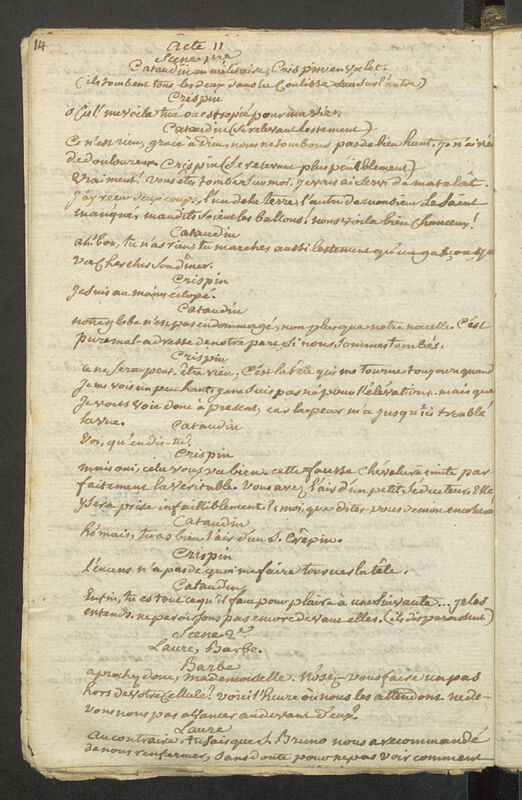 14
Acte II
Scene 1re
Cataudin en militaire, Crispin en valet.
(ils tombent tous les deux dans la Coulisse l'un sur l'autre)
Crispin
o Ciel! me voila tué ou estropié pour ma vie.
Cataudin (se relevant lestement)
Ce n'est rien, grace à Dieu, nous ne tombons pas de bien haut. je n'ai rien
de douloureux. Crispin (se relevant plus peniblement)
Vraiment! vous êtes tombé sur moi, je vous ai servi de matelât.
j'ay reçu deux coups, l'un de la terre, l'autre de monsieur. Le saut
manqué, maudits soient les ballons! nous voila bien chanceux!
Cataudin
ah! bon, tu n'as rien; tu marches aussi lestement qu'un garçon qui
va chercher son dîner.
Crispin
Je suis au moins éclopé.
Cataudin
notre globe n'est pas endommagé, non plus que notre nacelle. C'est
pure mal-adresse de notre part, si nous sommes tombés.
Crispin
ce ne sera peut-être rien; C'est la tête qui me tourne toujours quand
je me vois un peu haut; je ne suis pas né pour l'élévation. mais que
je vous voie donc à present, car la peur m'a jusqu'ici troublé
la vue. Cataudin
Voi, qu'en dis-tu?
Crispin
mais oui, cela vous va bien. cette fausse chevelure imite par-
faitement la véritable. Vous avez l'air d'un petit séducteur. Elle
y sera prise infailliblement. & moi, que dites-vous de mon encolure
Cataudin
hé mais, tu as bien l'air d'un S. Crêpin.
Crispin
l'encens n'a pas de quoi me faire tourner la tête.
Cataudin
Enfin, tu es tout ce qu'il faut pour plaire à une suivante... je les
entends. ne paroissons pas encore devant elles. (ils disparaissent)
Scene 2e
Laure, Barbe.
Barbe
aprochez donc, mademoiselle. N'osez-vous faire un pas
hors de votre cellule? voici l'heure où nous les attendons. ne de-
vons nous pas avancer au devant d'eux?
Laure
au contraire. tu sais que Bruno nous a recommandé
de nous renfermer, sans doute pour ne pas voir comment